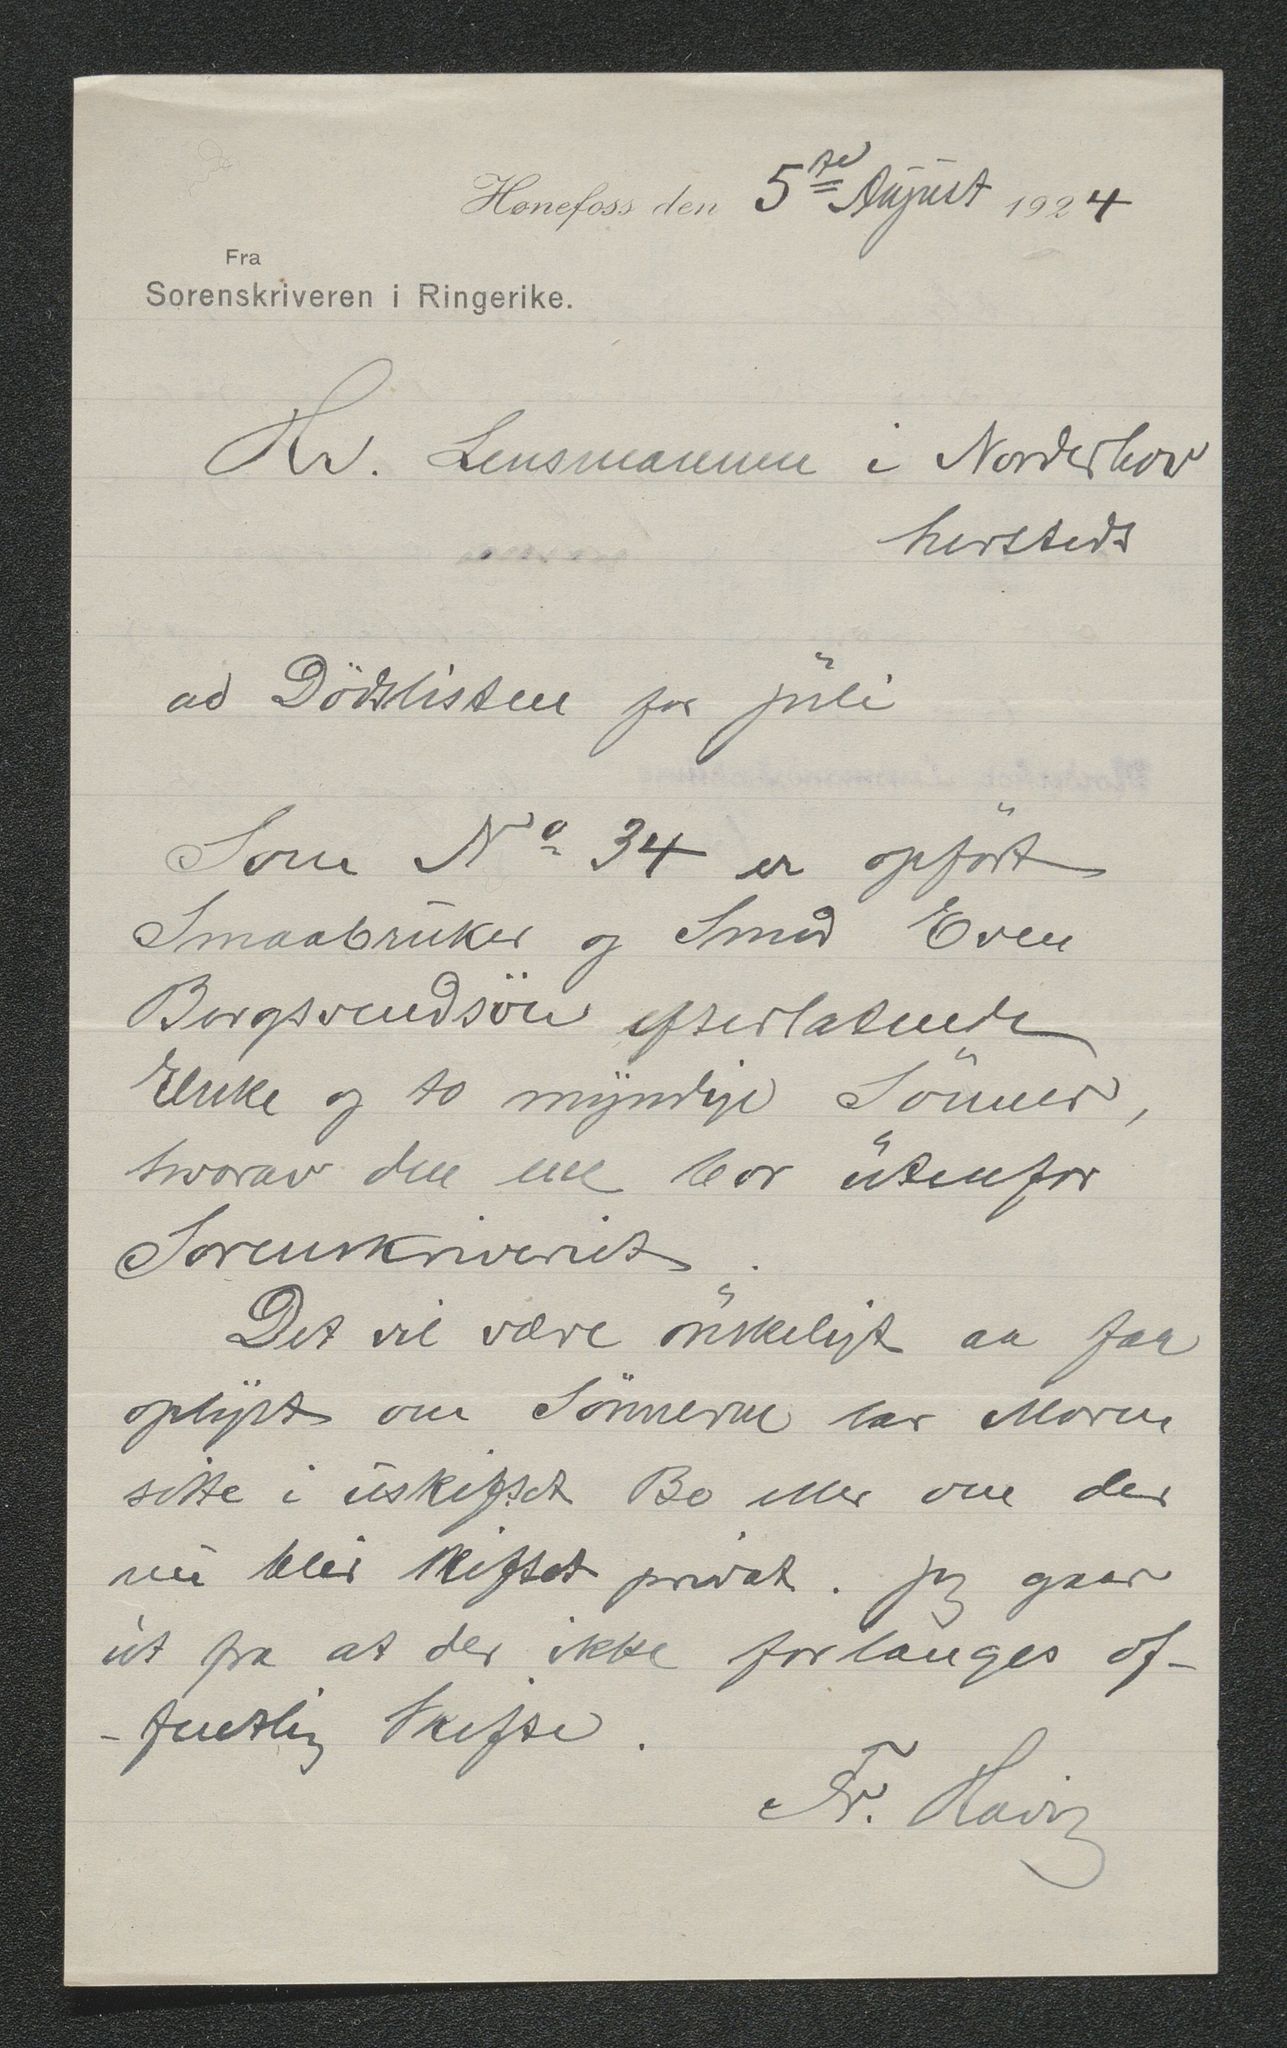 Hønefoss den 5te August 1924
Fra
Sorenskriveren i Ringerike.
Hr. Lensmannen i Norderhov
hersteds
ad Dödslisten for juli
Som No 34 er opfört
Smaabruker og Smed Even
Borgsvendsön efterlatende
Enke og to myndige Sönner,
hvorav den ene bor utenfor
Sorenskriveriet.
Det vil være önskeligt aa faa
oplyst om Sönnerne lar Moren
sitte i uskiftet Bo eller om der
nu blir skiftet privat. Jeg gaar
ut fra at der ikke forlanges of-
-fentlig Skifte.
Fr.